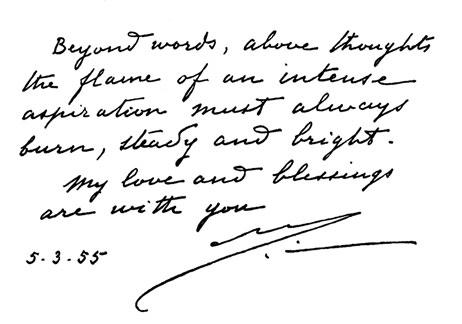 Beyond words, above thoughts
the flame of an intense
aspiration must always
burn, steady and bright.
My love and blessings
are with you
5.3.55